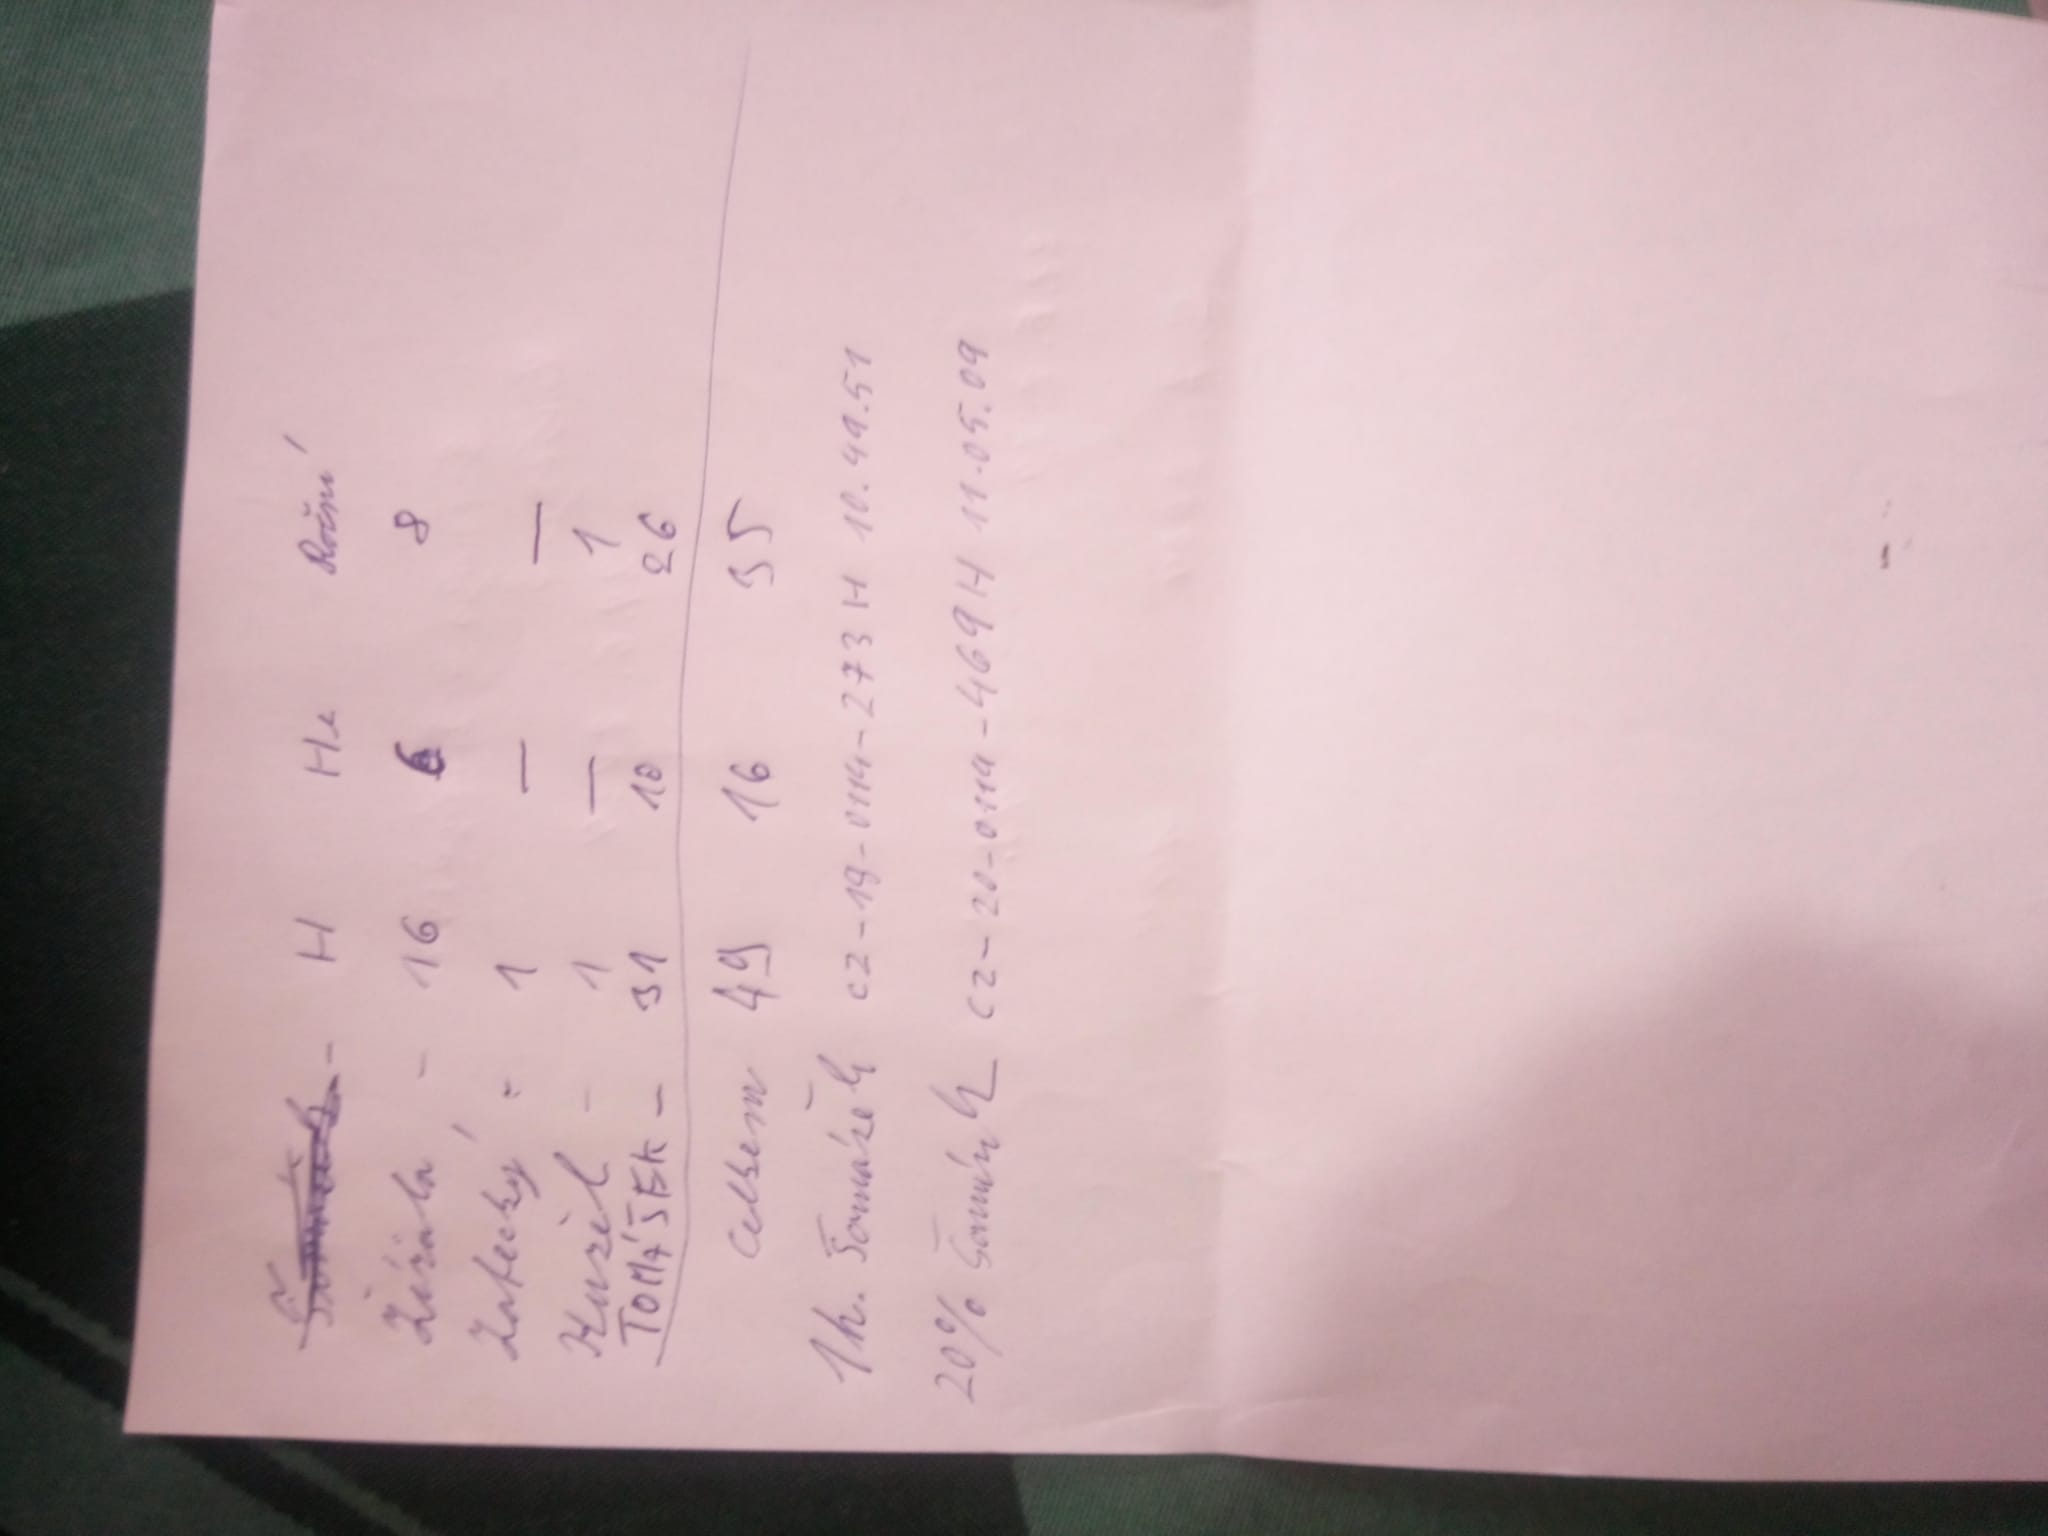 - H He Roční
Žižala - 16 6 8
Žatecký - 1 — —
Kuzel - 1 — 1
TOMÁŠEK - 31 10 26
Celkem 49 16 35
1k. Tomášek CZ-19-0114-273 H 10.49.51
20% CZ-20-0114-469 H 11.05.09